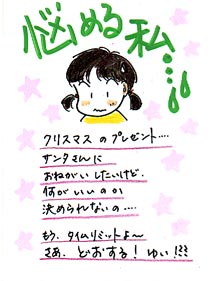 悩める私…
クリスマスのプレゼント‥‥
サンタさんに
おねがいしたいけど、
何がいいのか
決められないの‥‥
もう、タイムリミットよ〜
さあ、どおする!ゆい!!!